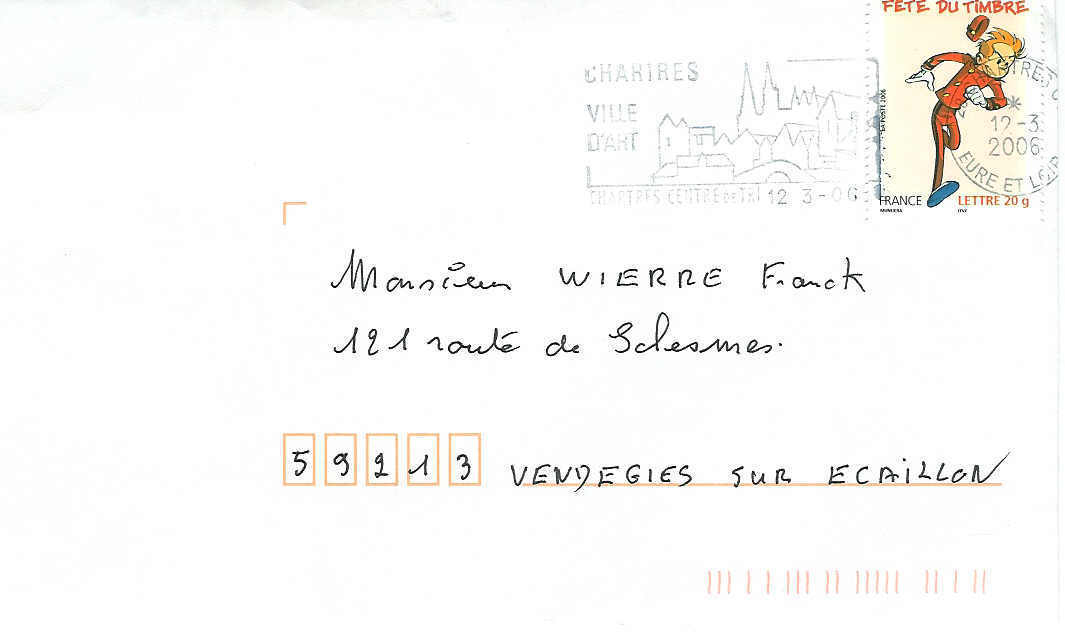 FÊTE DU TIMBRE
CHARTRES
VILLE
D'ART
CHARTRES CENTRE DE TRI 12 3-06
12-3
2006
EURE ET LOIR
LA POSTE 2006
FRANCE
LETTRE 20 g
ITVF
Monsieur WIERRE Franck
121 route de Solesmes.
59213 VENDEGIES SUR ECAILLON